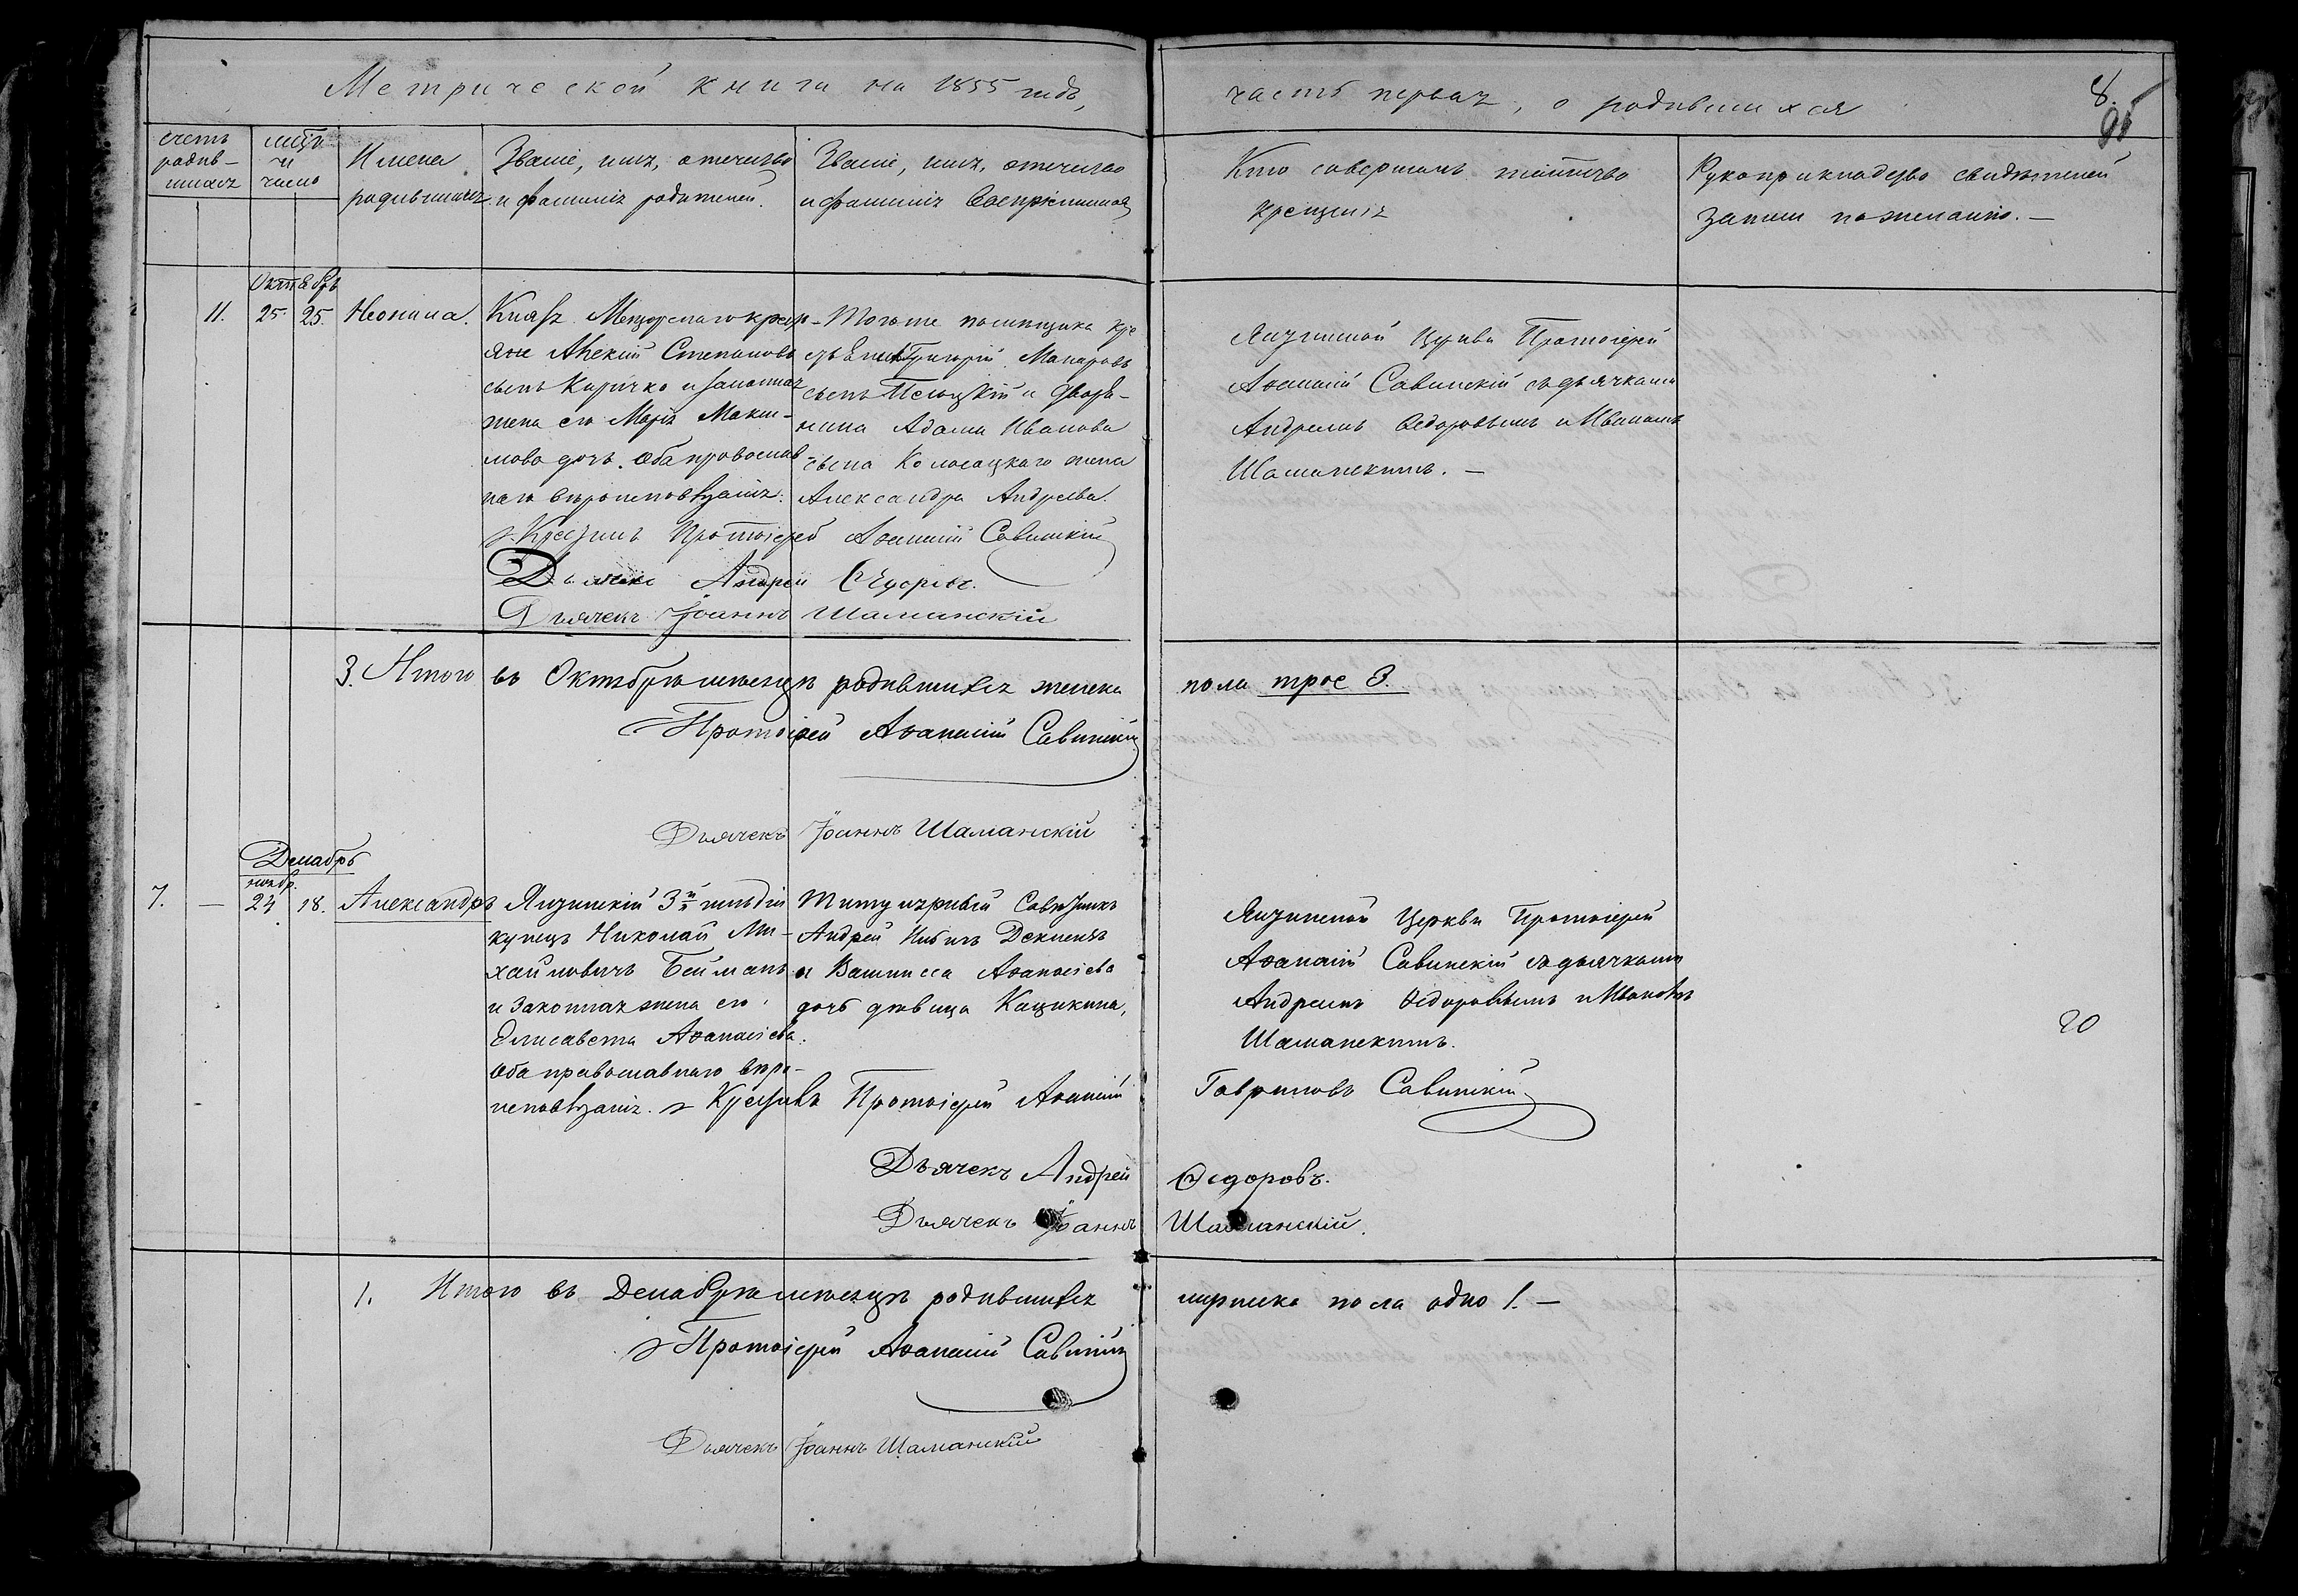 Метрической книги на 1855 годъ,
часть первая, о родившихся
8.
счетъ родив-шихся
мѣсяцъ и число
Имена родившихся
Званіе, имя, отечество и фамилія родителей.
Званіе, имя, отечество и фамилія Воспріемниковъ
Кто совершалъ таинство крещенія
Рукоприкладство свидѣтелей записи по желанію. —
Октябрь
11.
25.
25.
Неонила.
Князя Мещерскаго кресть-
яне Алексій Степановъ
сынъ Киричко и законная
жена его Марія Макси-
мова дочь. Оба православ-
наго вѣроисповѣданія.
Тогоже помѣщика кре
Григорій Макаровъ
сынъ и дворя-
нина Адама Иванова
сына жена
Александра Андреева.
церкви Протоіерей
Аѳанасій Савинскій съ дьячками
Андреемъ Ѳедоровымъ и Иваномъ
Шаманскимъ. —
Крестилъ Протоіерей Аѳанасій Савинскій
Дьячекъ Андрей Ѳедоровъ.
Дьячекъ Іоаннъ Шаманскій
3. Итого въ Октябрѣ мѣсяцѣ родившихся женска пола трое 3.
Протоіерей Аѳанасій Савинскій
Дьячекъ Іоаннъ Шаманскій
Декабрь
ноябр.
7.
—
24
18.
Александръ
3й гильдіи
купецъ Николай Ми-
хайловичъ Бейманъ
и законная жена его
Елисавета Аѳанасіева.
Оба православнаго вѣро-
исповѣданія.
Титулярный Совѣтникъ
Андрей
и Аѳанасіева
дочь дѣвица Кацикина,
Церкви Протоіерей
Аѳанасій Савинскій съ дьячками
Андреемъ Ѳедоровымъ и Иваномъ
Шаманскимъ.
20
Крестилъ Протоіерей Аѳанасій Гавриловъ Савинскій
Дьячекъ Андрей Ѳедоровъ.
Дьячекъ Іоаннъ Шаманскій.
1. Итого въ Декабрѣ мѣсяцѣ родившихся мужеска пола одно 1. —
Протоіерей Аѳанасій Савинскій
Дьячекъ Іоаннъ Шаманскій